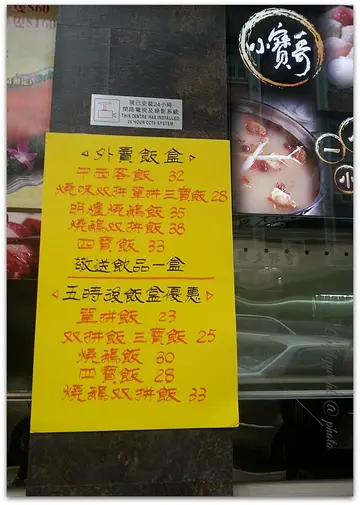 $160
$60
小寶哥
現已安裝24小時
閉路電視及錄影系統
THIS CENTRE HAS INSTALLED
24 HOUR CCTV SYSTEM
外賣飯盒
午西客飯 32
燒味双拼單拼三寶飯 28
明爐燒鵝飯 35
燒鵝双拼飯 38
四寶飯 33
敬送飲品一盒
五時後飯盒優惠
單拼飯 23
双拼飯 三寶飯 25
燒鵝飯 30
四寶飯 28
燒鵝双拼飯 33
小
@ photo